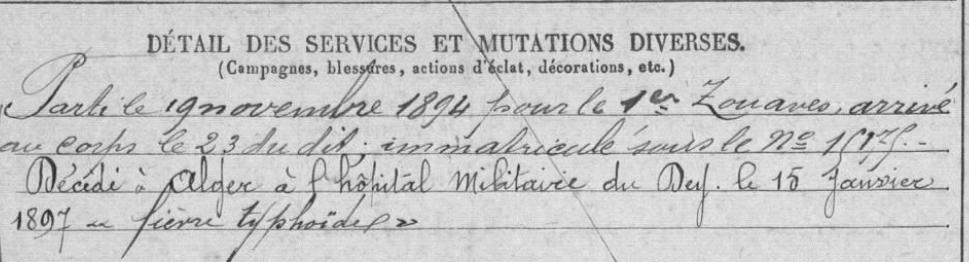 DÉTAIL DES SERVICES ET MUTATIONS DIVERSES.
(Campagnes, blessures, actions d'éclat, décorations, etc.)
Parti le 19 novembre 1894 pour le 1er Zouaves, arrivé
au corps le 23 du dit; immatriculé sous le No
Décédé à Alger à l'hôpital Militaire du Dey. le 15 Janvier
1897 « fièvre typhoïde »